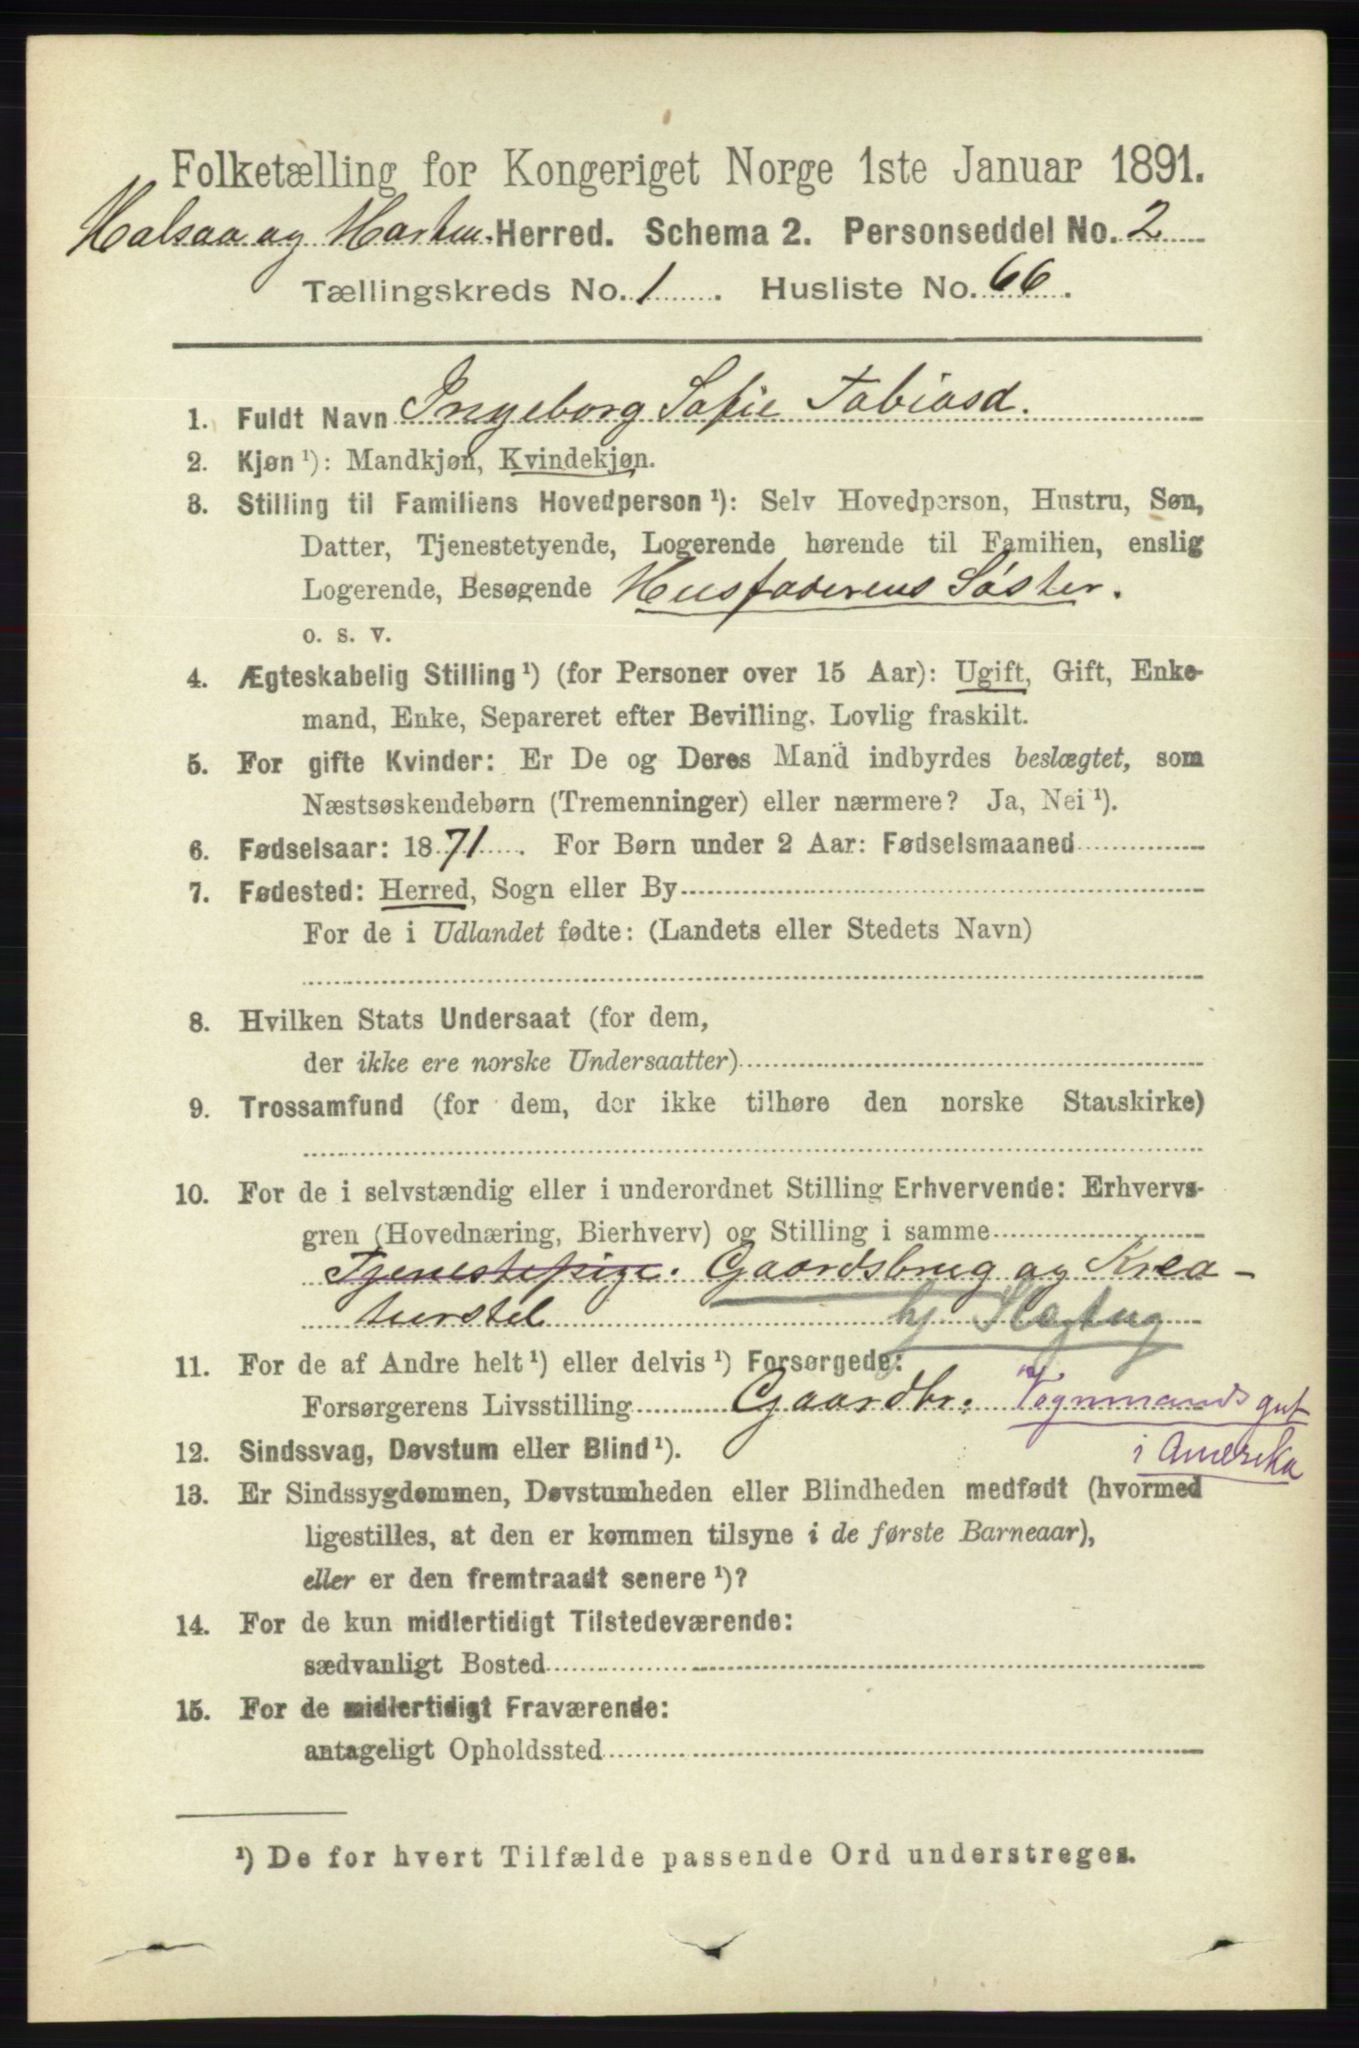 Folketælling for Kongeriget Norge 1ste Januar 1891.
Halsaa og Harkm. Herred. Schema 2. Personseddel No. 2
Tællingskreds No. 1. Husliste No. 66.
1. Fuldt Navn Ingeborg Sofie Tobiasd.
2. Kjøn ¹): Mandkjøn, Kvindekjøn.
3. Stilling til Familiens Hovedperson ¹): Selv Hovedperson, Hustru, Søn,
Datter, Tjenestetyende, Logerende hørende til Familien, enslig
Logerende, Besøgende Husfaderens Søster.
o. s. v.
4. Ægteskabelig Stilling ¹) (for Personer over 15 Aar): Ugift, Gift, Enke-
mand, Enke, Separeret efter Bevilling. Lovlig fraskilt.
5. For gifte Kvinder: Er De og Deres Mand indbyrdes beslægtet, som
Næstsøskendebørn (Tremenninger) eller nærmere? Ja, Nei ¹).
6. Fødselsaar: 1871. For Børn under 2 Aar: Fødselsmaaned
7. Fødested: Herred, Sogn eller By
For de i Udlandet fødte: (Landets eller Stedets Navn)
8. Hvilken Stats Undersaat (for dem,
der ikke ere norske Undersaatter)
9. Trossamfund (for dem, der ikke tilhøre den norske Statskirke)
10. For de i selvstændig eller i underordnet Stilling Erhvervende: Erhvervs-
gren (Hovednæring, Bierhverv) og Stilling i samme
Tjenestepige. Gaardsbrug og Krea-
turstel hj Slægtng
11. For de af Andre helt ¹) eller delvis ¹) Forsørgede:
Forsørgerens Livsstilling Gaardbr. Vognmandsgut
i Amerika
12. Sindssvag, Døvstum eller Blind ¹).
13. Er Sindssygdommen, Døvstumheden eller Blindheden medfødt (hvormed
ligestilles, at den er kommen tilsyne i de første Barneaar),
eller er den fremtraadt senere ¹)?
14. For de kun midlertidigt Tilstedeværende:
sædvanligt Bosted
15. For de midlertidigt Fraværende:
antageligt Opholdssted
¹) De for hvert Tilfælde passende Ord understreges.